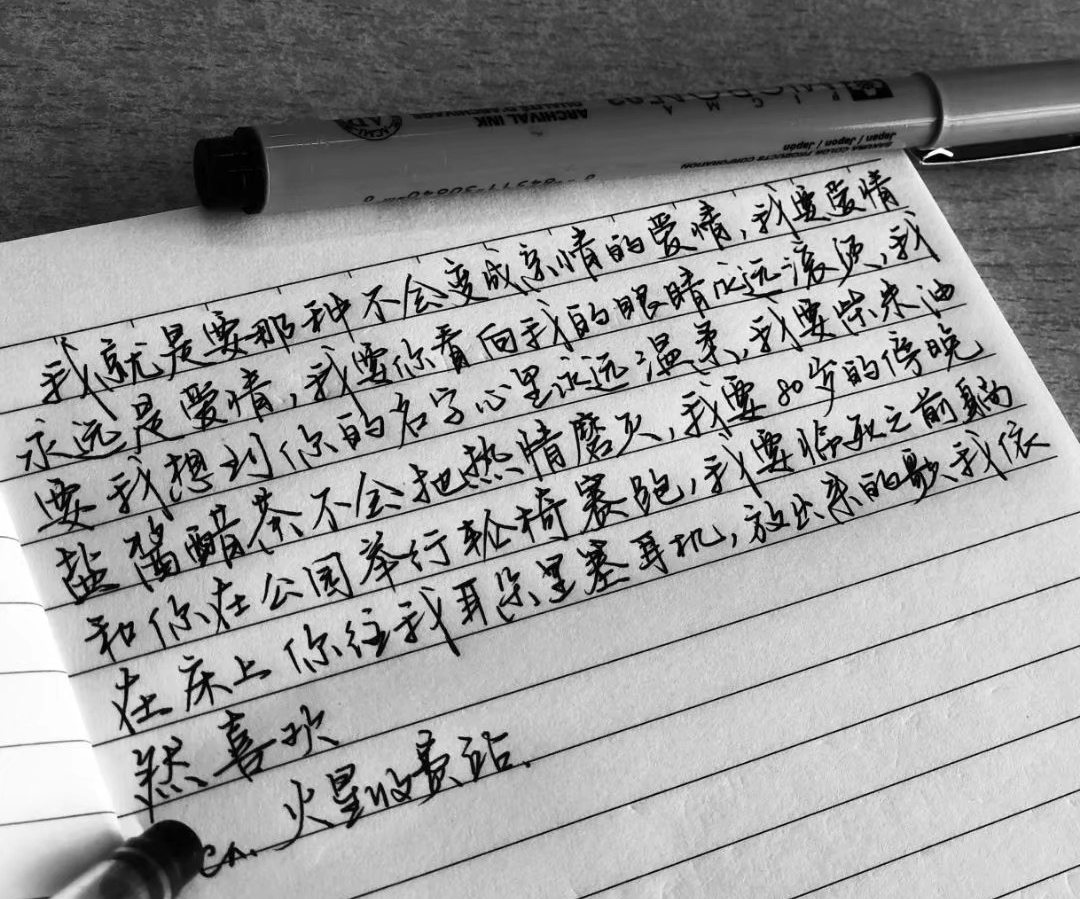 ARCHIVAL INK
QUALITÉ D'ARCHIVAGE
SAKURA COLOR PRODUCTS CORPORATION
Japan / Japon / Japón
我就是要那种不会变成亲情的爱情,我要爱情
永远是爱情,我要你看向我的眼睛永远滚烫,我
要我想到你的名字心里永远温柔,我要柴米油
盐酱醋茶不会把热情磨灭,我要80岁的傍晚
和你在公园举行轮椅赛跑,我要临死之前躺
在床上你往我耳朵里塞耳机,放出来的歌我依
然喜欢
火星收费站.